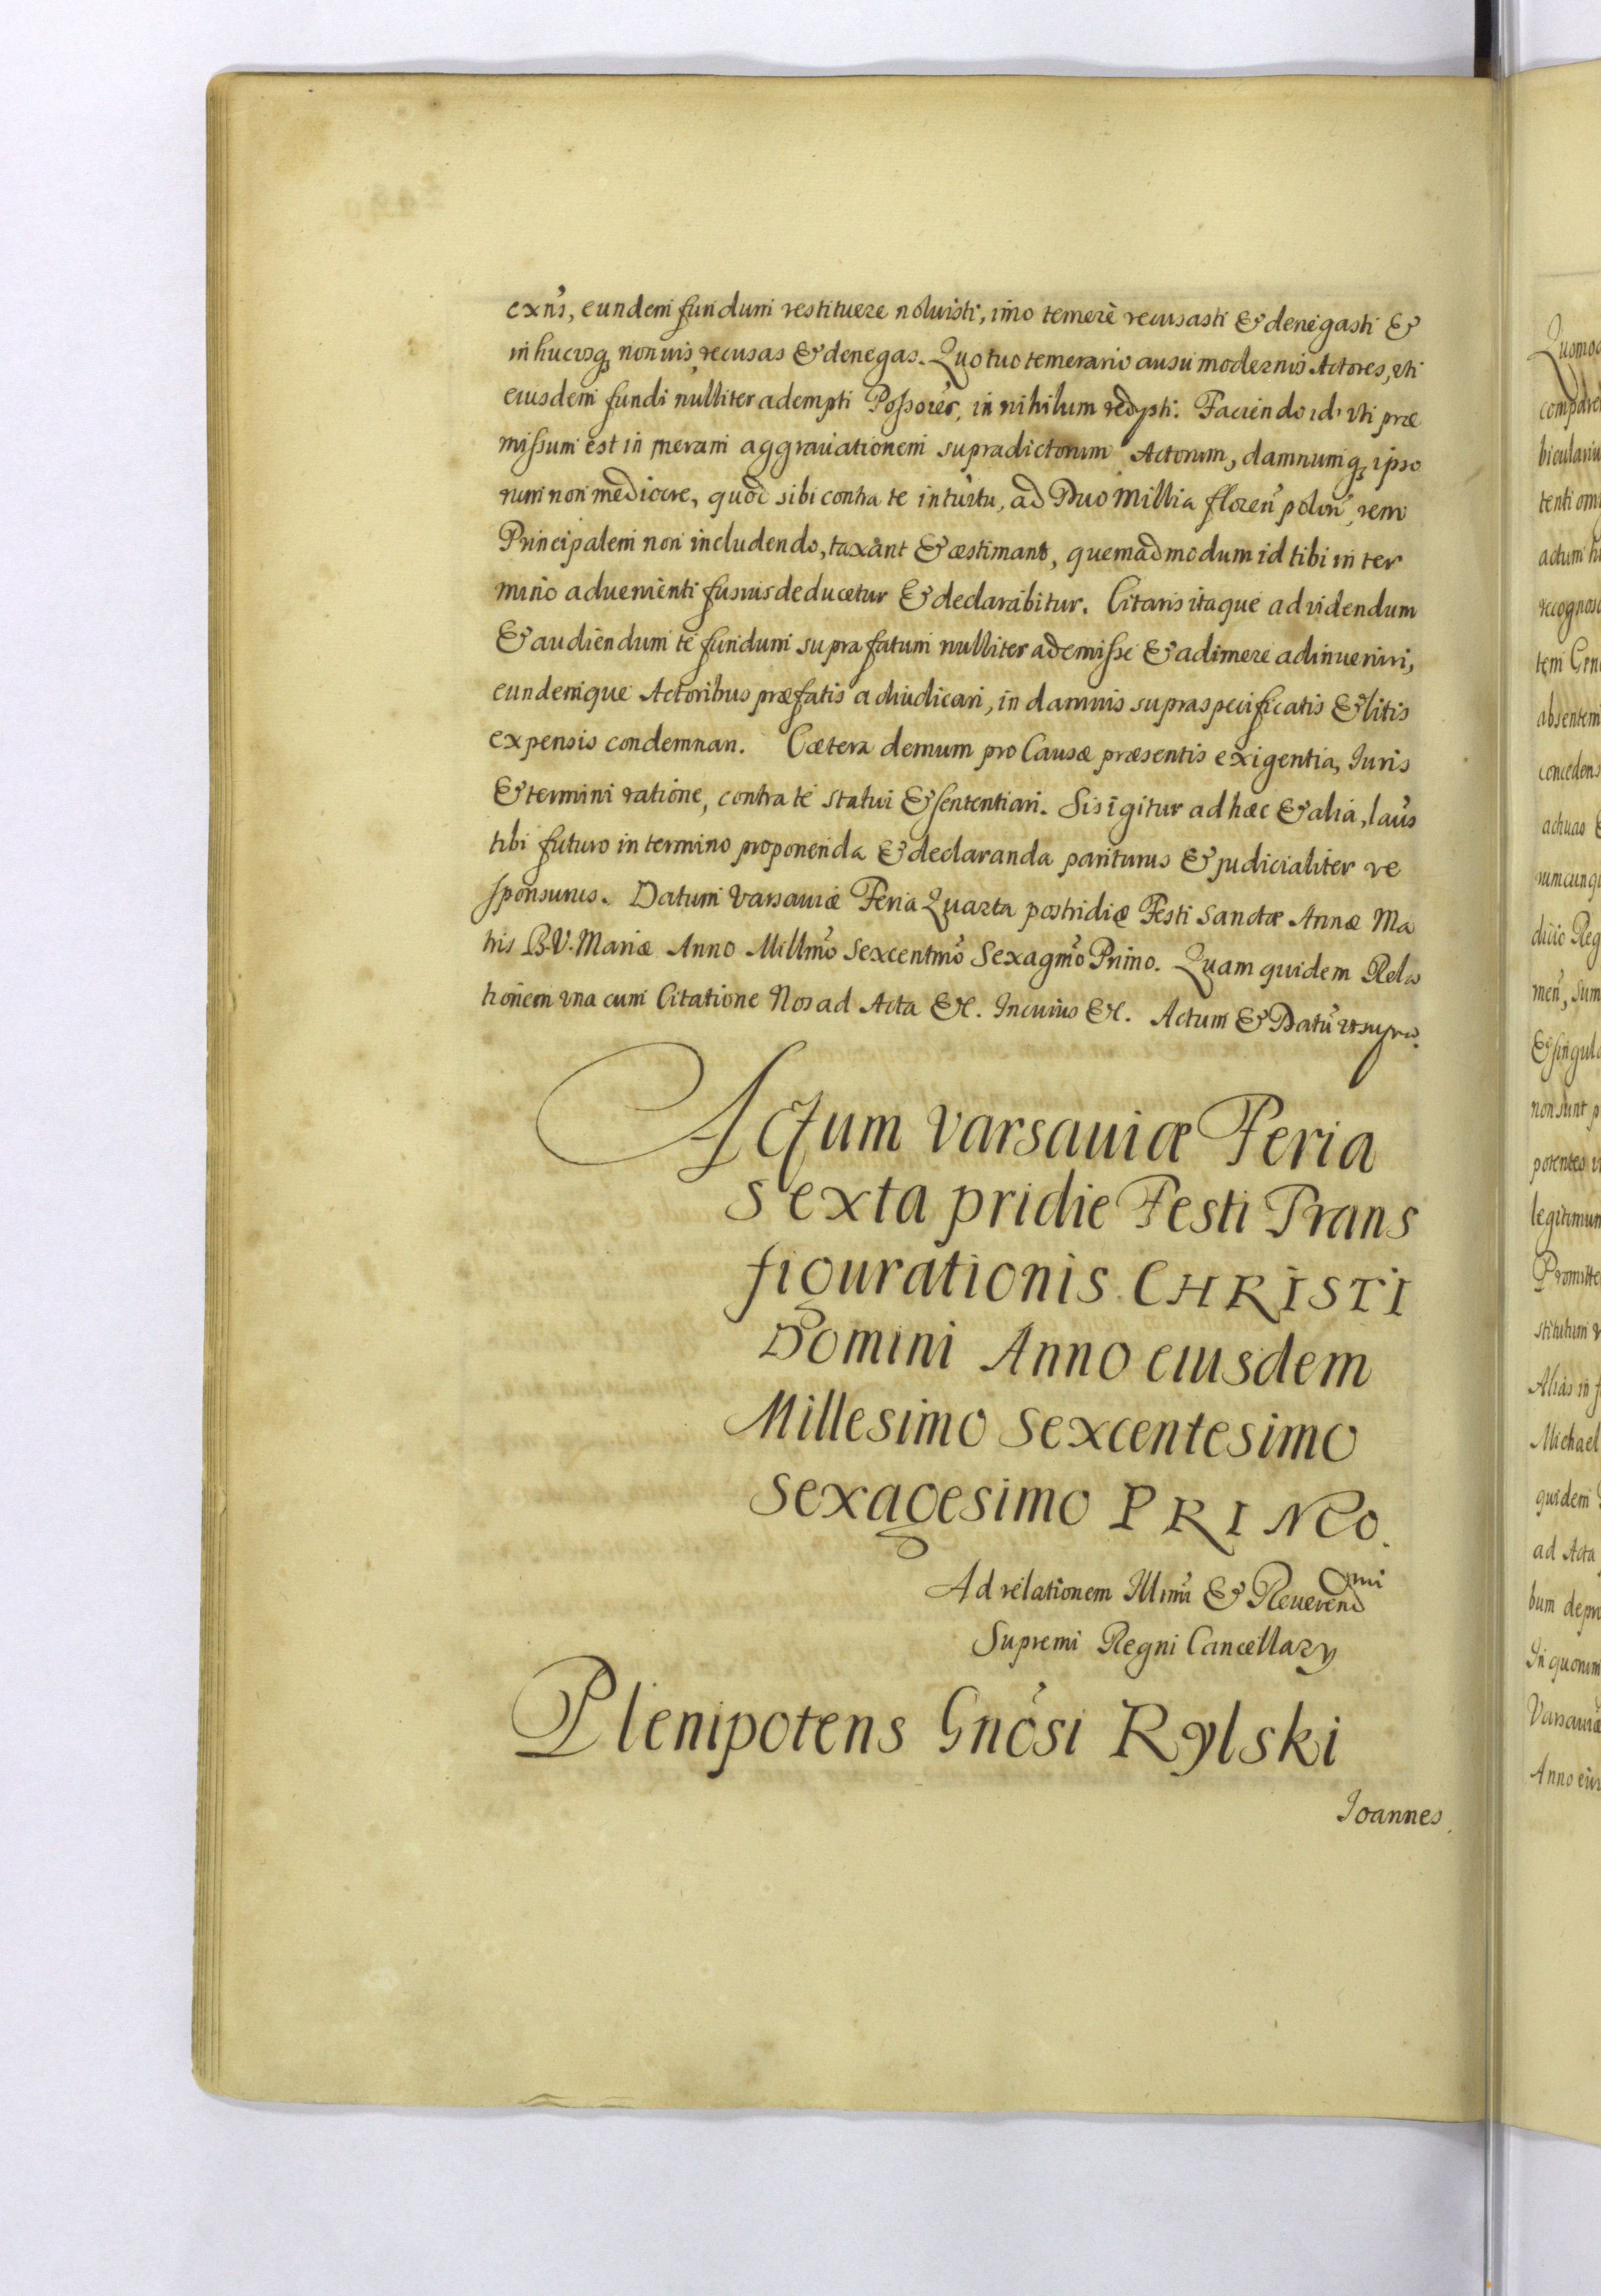 exn̄s, eundem fundum restituere noluisti, imo temerè recusasti & denegasti &
in hucusq₃ non uis, recusas & denegas. Quo tuo temerario ausu modernos Actores, uti
eiusdem fundi nulliter adempti Possores, in nihilum redegisti. Faciendo id, uti præ
missum est in meram aggrauationem supradictorum Actorum, damnumq₃ ipso
rum non mediocre, quod sibi contra te intuitu, ad Duo Millia floren̄ polon̄, rem
Principalem non includendo, taxant & æstimant, quemadmodum id tibi in ter
mino aduenienti fusius deducetur & declarabitur. Citaris itaque ad videndum
& audiendum te fundum suprafatum nulliter ademisse & adimere adinueniri,
eundemque Actoribus præfatis adiudicari, in damnis supraspecificatis & litis
expensis condemnari. Cætera demum pro Causæ præsentis exigentia, Iuris
& termini ratione, contra te statui & sententiari. Sis igitur ad hæc & alia, laus
tibi futuro in termino proponenda & declaranda pariturus & judicialiter re
sponsurus. Datum Varsauiæ Feria Quarta postridie Festi Sanctæ Annæ Ma
tris B.V. Mariæ Anno Millm̄o Sexcentm̄o Sexagm̄o Primo. Quam quidem Rela
tionem vna cum Citatione Nos ad Acta &c. In cuius &c. Actum & Datū ut supra.
Actum Varsauiæ Feria
Sexta pridie Festi Trans
figurationis CHRISTI
Domini Anno eiusdem
Millesimo Sexcentesimo
Sexagesimo PRIMO.
Ad relationem Illmi & Reuerendmi
Supremi Regni Cancellarÿ
Plenipotens Gnōsi Rylski
Ioannes
Quomod
compare
bicularii
tenti om
actum h
recognos
tem Gen
absentem
concedens
actuas &
rumcunq
dicio Reg
men̄, sum
& singula
non sunt p
potentes
legitimum
Promitte
stitutum
Alias in f
Michael
quidem
ad Acta
bum depu
In quorum
Varsauiæ
Anno eiu